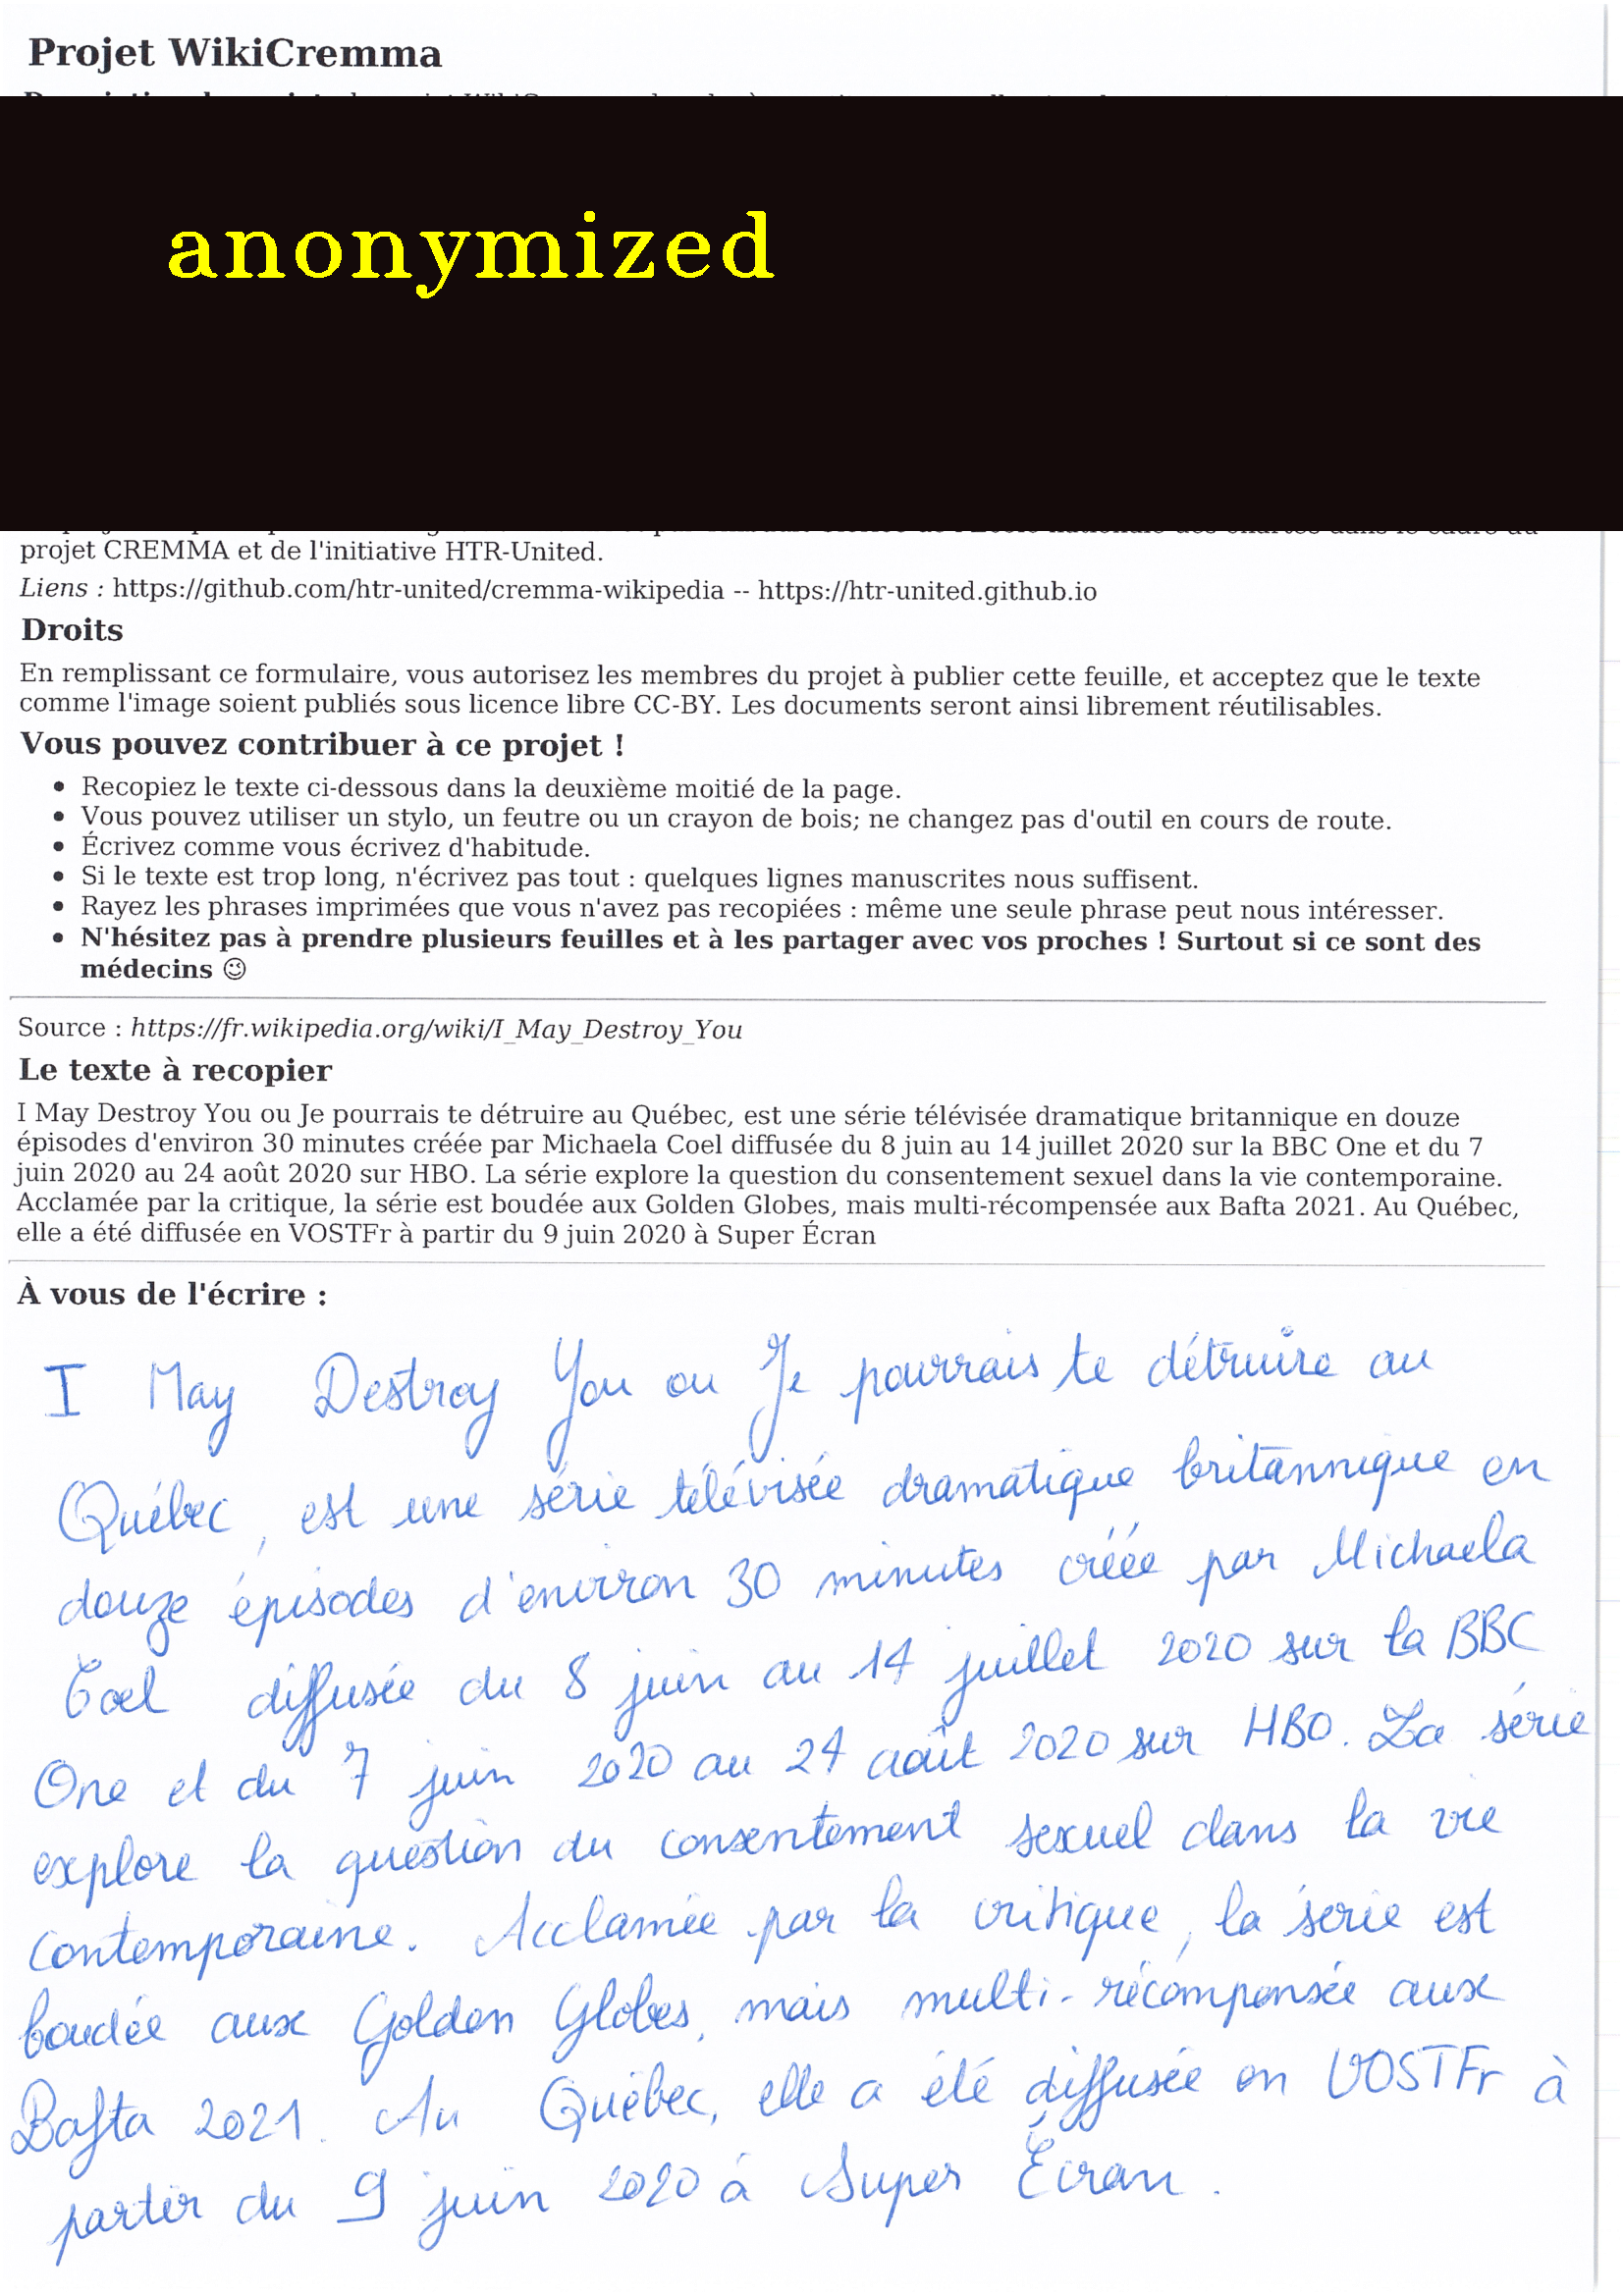 Projet WikiCremma
anonymized
projet CREMMA et de l'initiative HTR-United.
Liens : https://github.com/htr-united/cremma-wikipedia -- https://htr-united.github.io
Droits
En remplissant ce formulaire, vous autorisez les membres du projet à publier cette feuille, et acceptez que le texte
comme l'image soient publiés sous licence libre CC-BY. Les documents seront ainsi librement réutilisables.
Vous pouvez contribuer à ce projet !
• Recopiez le texte ci-dessous dans la deuxième moitié de la page.
• Vous pouvez utiliser un stylo, un feutre ou un crayon de bois; ne changez pas d'outil en cours de route.
• Écrivez comme vous écrivez d'habitude.
• Si le texte est trop long, n'écrivez pas tout : quelques lignes manuscrites nous suffisent.
• Rayez les phrases imprimées que vous n'avez pas recopiées : même une seule phrase peut nous intéresser.
• N'hésitez pas à prendre plusieurs feuilles et à les partager avec vos proches ! Surtout si ce sont des
médecins 😉
Source : https://fr.wikipedia.org/wiki/I_May_Destroy_You
Le texte à recopier
I May Destroy You ou Je pourrais te détruire au Québec, est une série télévisée dramatique britannique en douze
épisodes d'environ 30 minutes créée par Michaela Coel diffusée du 8 juin au 14 juillet 2020 sur la BBC One et du 7
juin 2020 au 24 août 2020 sur HBO. La série explore la question du consentement sexuel dans la vie contemporaine.
Acclamée par la critique, la série est boudée aux Golden Globes, mais multi-récompensée aux Bafta 2021. Au Québec,
elle a été diffusée en VOSTFr à partir du 9 juin 2020 à Super Écran
À vous de l'écrire :
I May Destroy You ou Je pourrais te détruire au
Québec, est une série télévisée dramatique britannique en
douze épisodes d'environ 30 minutes créée par Michaela
Coel diffusée du 8 juin au 14 juillet 2020 sur la BBC
One et du 7 juin 2020 au 24 août 2020 sur HBO. La série
explore la question du consentement sexuel dans la vie
contemporaine. Acclamée par la critique, la série est
boudée aux Golden Globes, mais multi-récompensée aux
Bafta 2021. Au Québec, elle a été diffusée en VOSTFr à
partir du 9 juin 2020 à Super Écran.